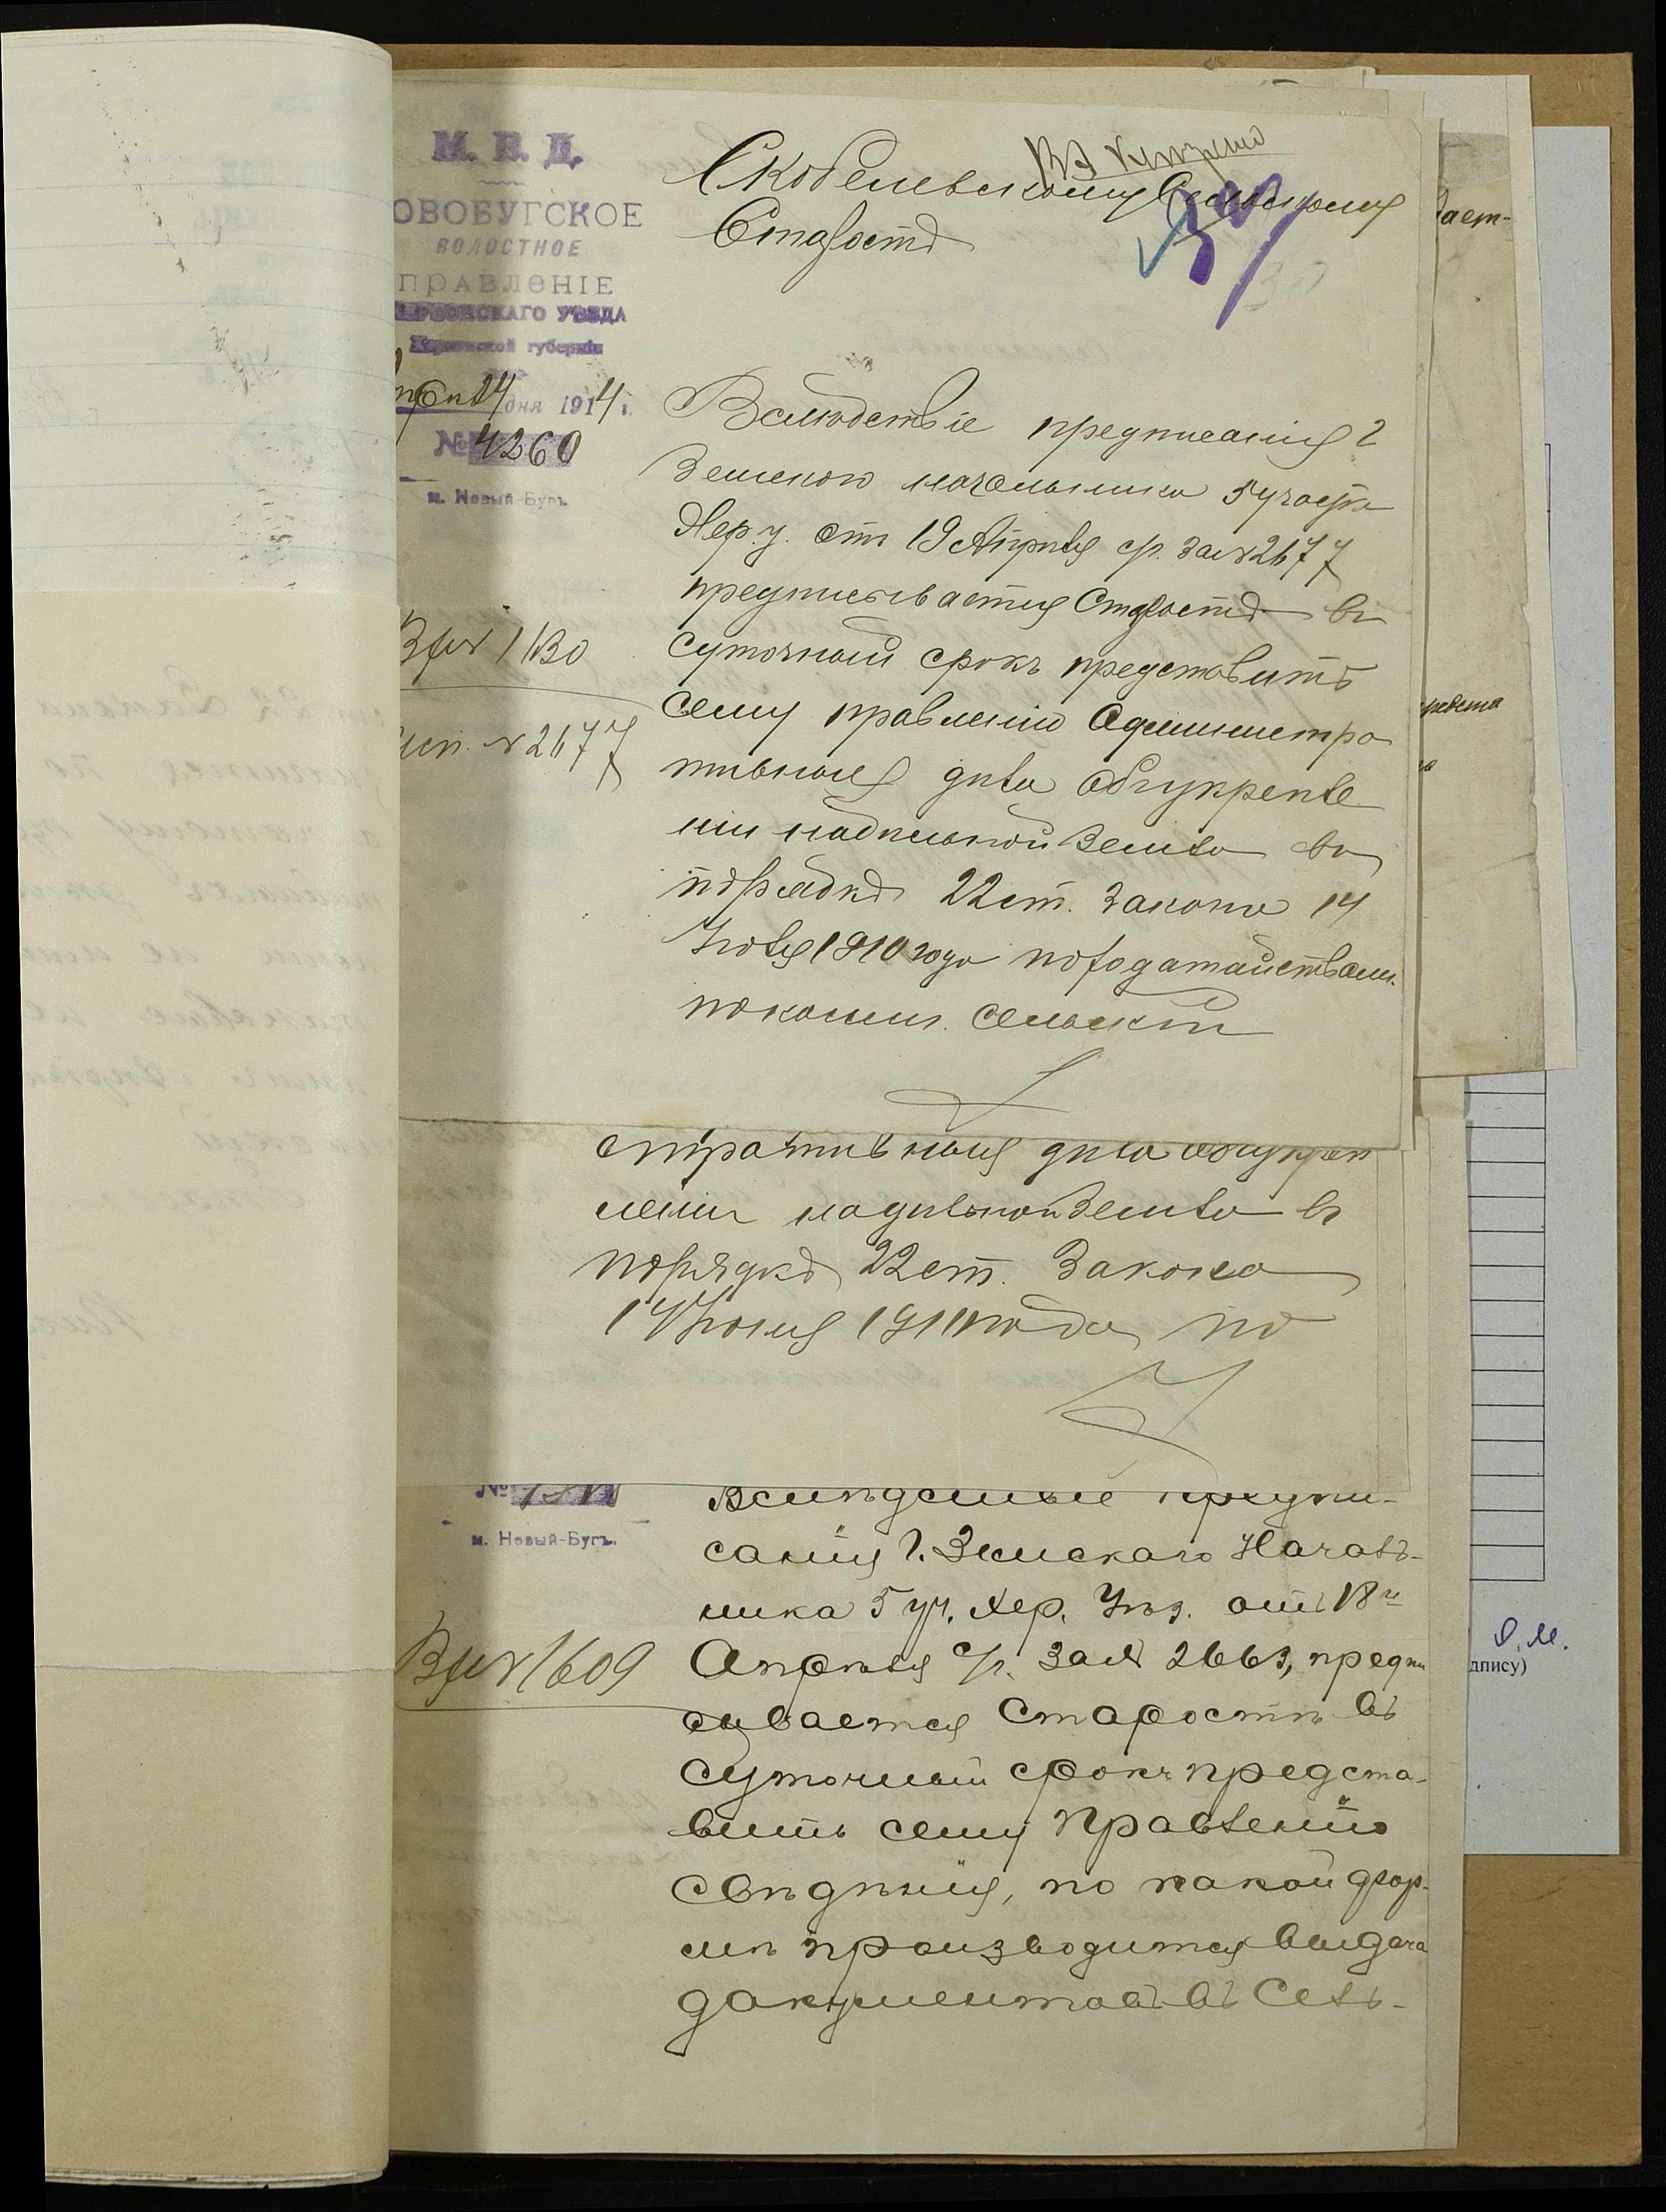 М. В. Д.
ОВОБУГСКОЕ
ВОЛОСТНОЕ
ПРАВЛЕНІЕ
ХЕРСОНСКАГО УѢЗДА
Херсонской губерніи
24 дня 1914 г.
№ 4260
м. Новый-Бугъ
Скобелевскому Сельскому
Старостѣ
Вслѣдствіе предписанія г
Земскаго начальника 5 участка
Хер. у. отъ 19 Апрѣля с/г. за № 2677
предписывается Старостѣ въ
суточный срокъ представить
сему правленію Администра
тивныя дѣла объ укрѣпле
ніи надѣльной земли въ
порядкѣ 22 ст. Закона 14
Іюля 1910 года по ходатайствам.
сельск
Вх № 1130
исп. № 2677
стративныя дѣла объ укрѣп
леніи надѣльной земли въ
порядкѣ 22 ст. Закона
14 Іюня 1910 года по
№
м. Новый-Бугъ.
Вслѣдствіе предпи-
санія г. Земскаго Началь-
ника 5 уч. Хер. Уѣз. отъ 18го
Апрѣля с/г. за № 2663, предпи
сывается Старостѣ въ
суточный срокъ предста-
вить сему правленію
свѣдѣнія, по какой фор-
мѣ производится выдача
документовъ въ Сель-
Вх № 1609
дает-
дпису)